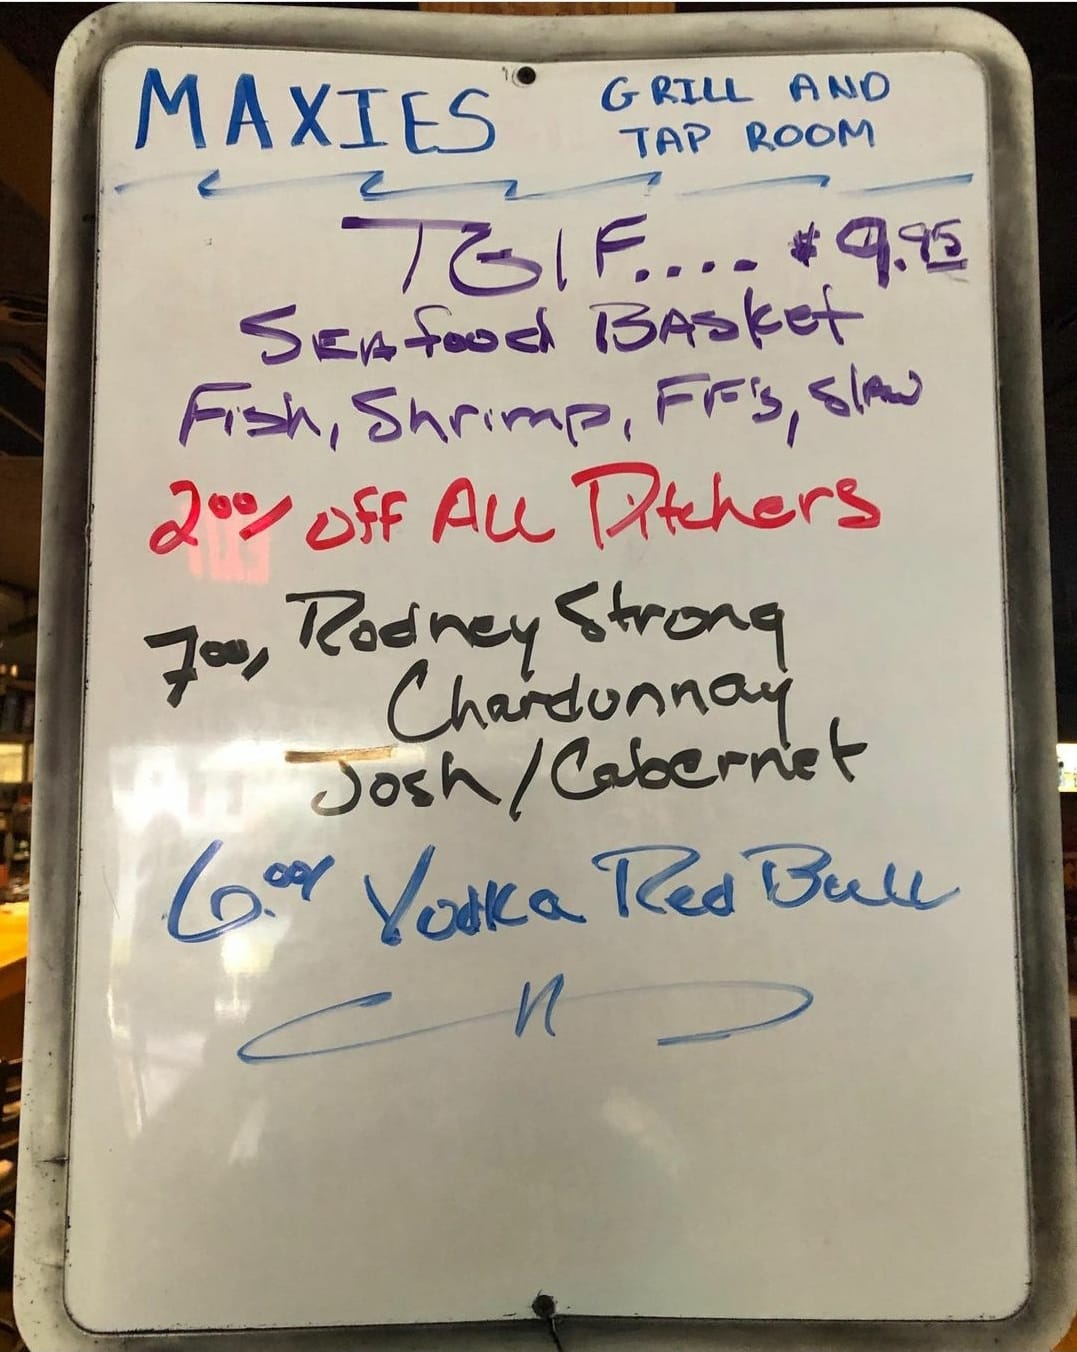 MAXIES GRILL AND
TAP ROOM
TGIF.... $9.95
SEAfood BASket
Fish, Shrimp, FF's, SlAW
2.00/ off ALL Pitchers
7.00, Rodney Strong
Chardonnay
Josh/Cabernet
6.00/ Vodka Red Bull